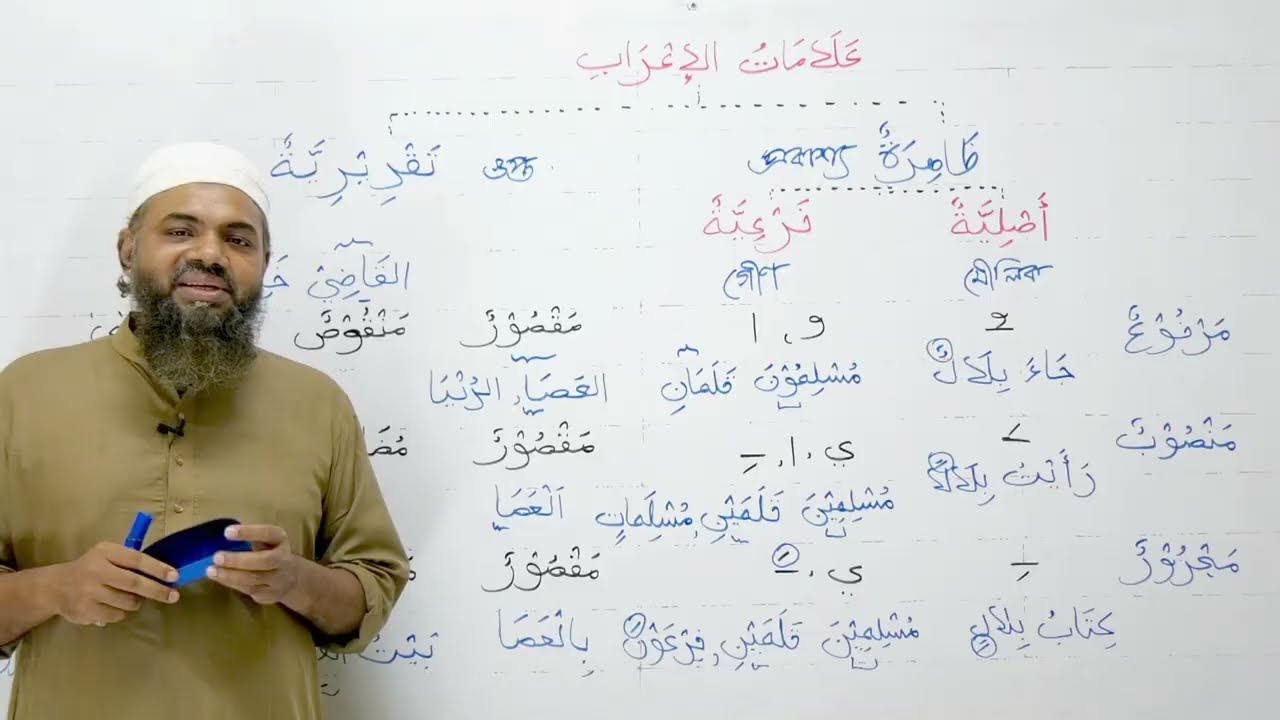 عَلَامَاتُ الإِعْرَابِ
ظَاهِرَةٌ প্রকাশ্য تَقْدِيْرِيَّةٌ
أَصْلِيَّةٌ فَرْعِيَّةٌ
মৌলিক গৌণ القَاضِيْ
مَرْفُوْعٌ ـُ و، ا مَقْصُوْرٌ مَنْقُوْصٌ
جَاءَ بِلَالٌ مُسْلِمُوْنَ قَلَمَانِ العَصَا، الدُّنْيَا
مَنْصُوْبٌ ـَ ي، ا، ـِ مَقْصُوْرٌ
رَأَيْتُ بِلَالًا مُسْلِمِيْنَ قَلَمَيْنِ، مُسْلِمَاتٍ اَلْعَصَا
مَجْرُوْرٌ ـِ ي، ـَ مَقْصُوْرٌ
كِتَابُ بِلَالٍ مُسْلِمِيْنَ قَلَمَيْنِ، فِرْعَوْنَ بِالْعَصَا بَيْتُ